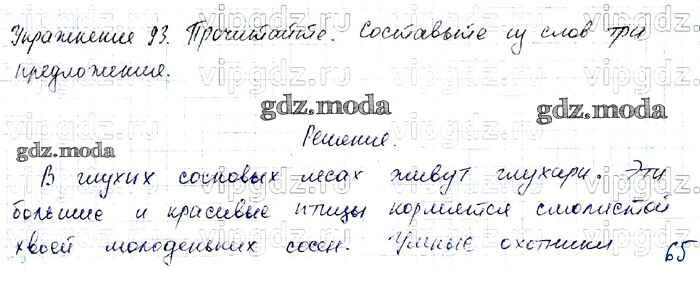 Упражнение 93. Прочитайте. Составьте из слов три
предложения.
gdz.moda
Решение.
gdz.moda
В глухих сосновых лесах живут глухари. Эти
большие и красивые птицы кормятся смолистой
хвоей молоденьких сосен. Умные охотники
65